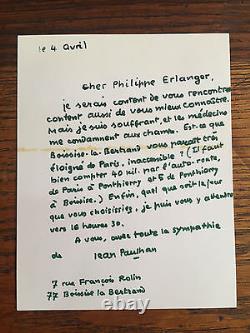 le 4 Avril
Cher Philippe Erlanger,
je serais content de vous rencontrer
content aussi de vous mieux connaître.
Mais je suis souffrant, et les médecins
me condamnent aux champs. Est-ce que
Boissise-la-Bertrand vous paraît très
éloigné de Paris, inaccessible? (Il faut
bien compter 40 mil. par l'auto-route,
de Paris à Ponthierry et 5 de Ponthierry
à Boissise.) Enfin, quel que soit le jour
que vous choisissiez, je puis vous y attendre
vers 16 heures 30.
A vous, avec toute la sympathie
de Jean Paulhan
7 rue François Rolin
77 Boissise la Bertrand